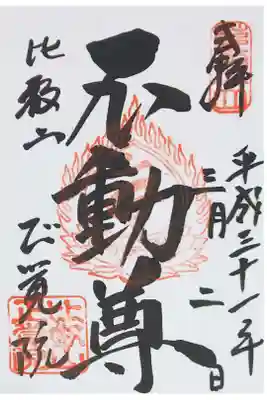 奉拝
平成三十一年
三月二日
不動尊
比叡山
正覚院